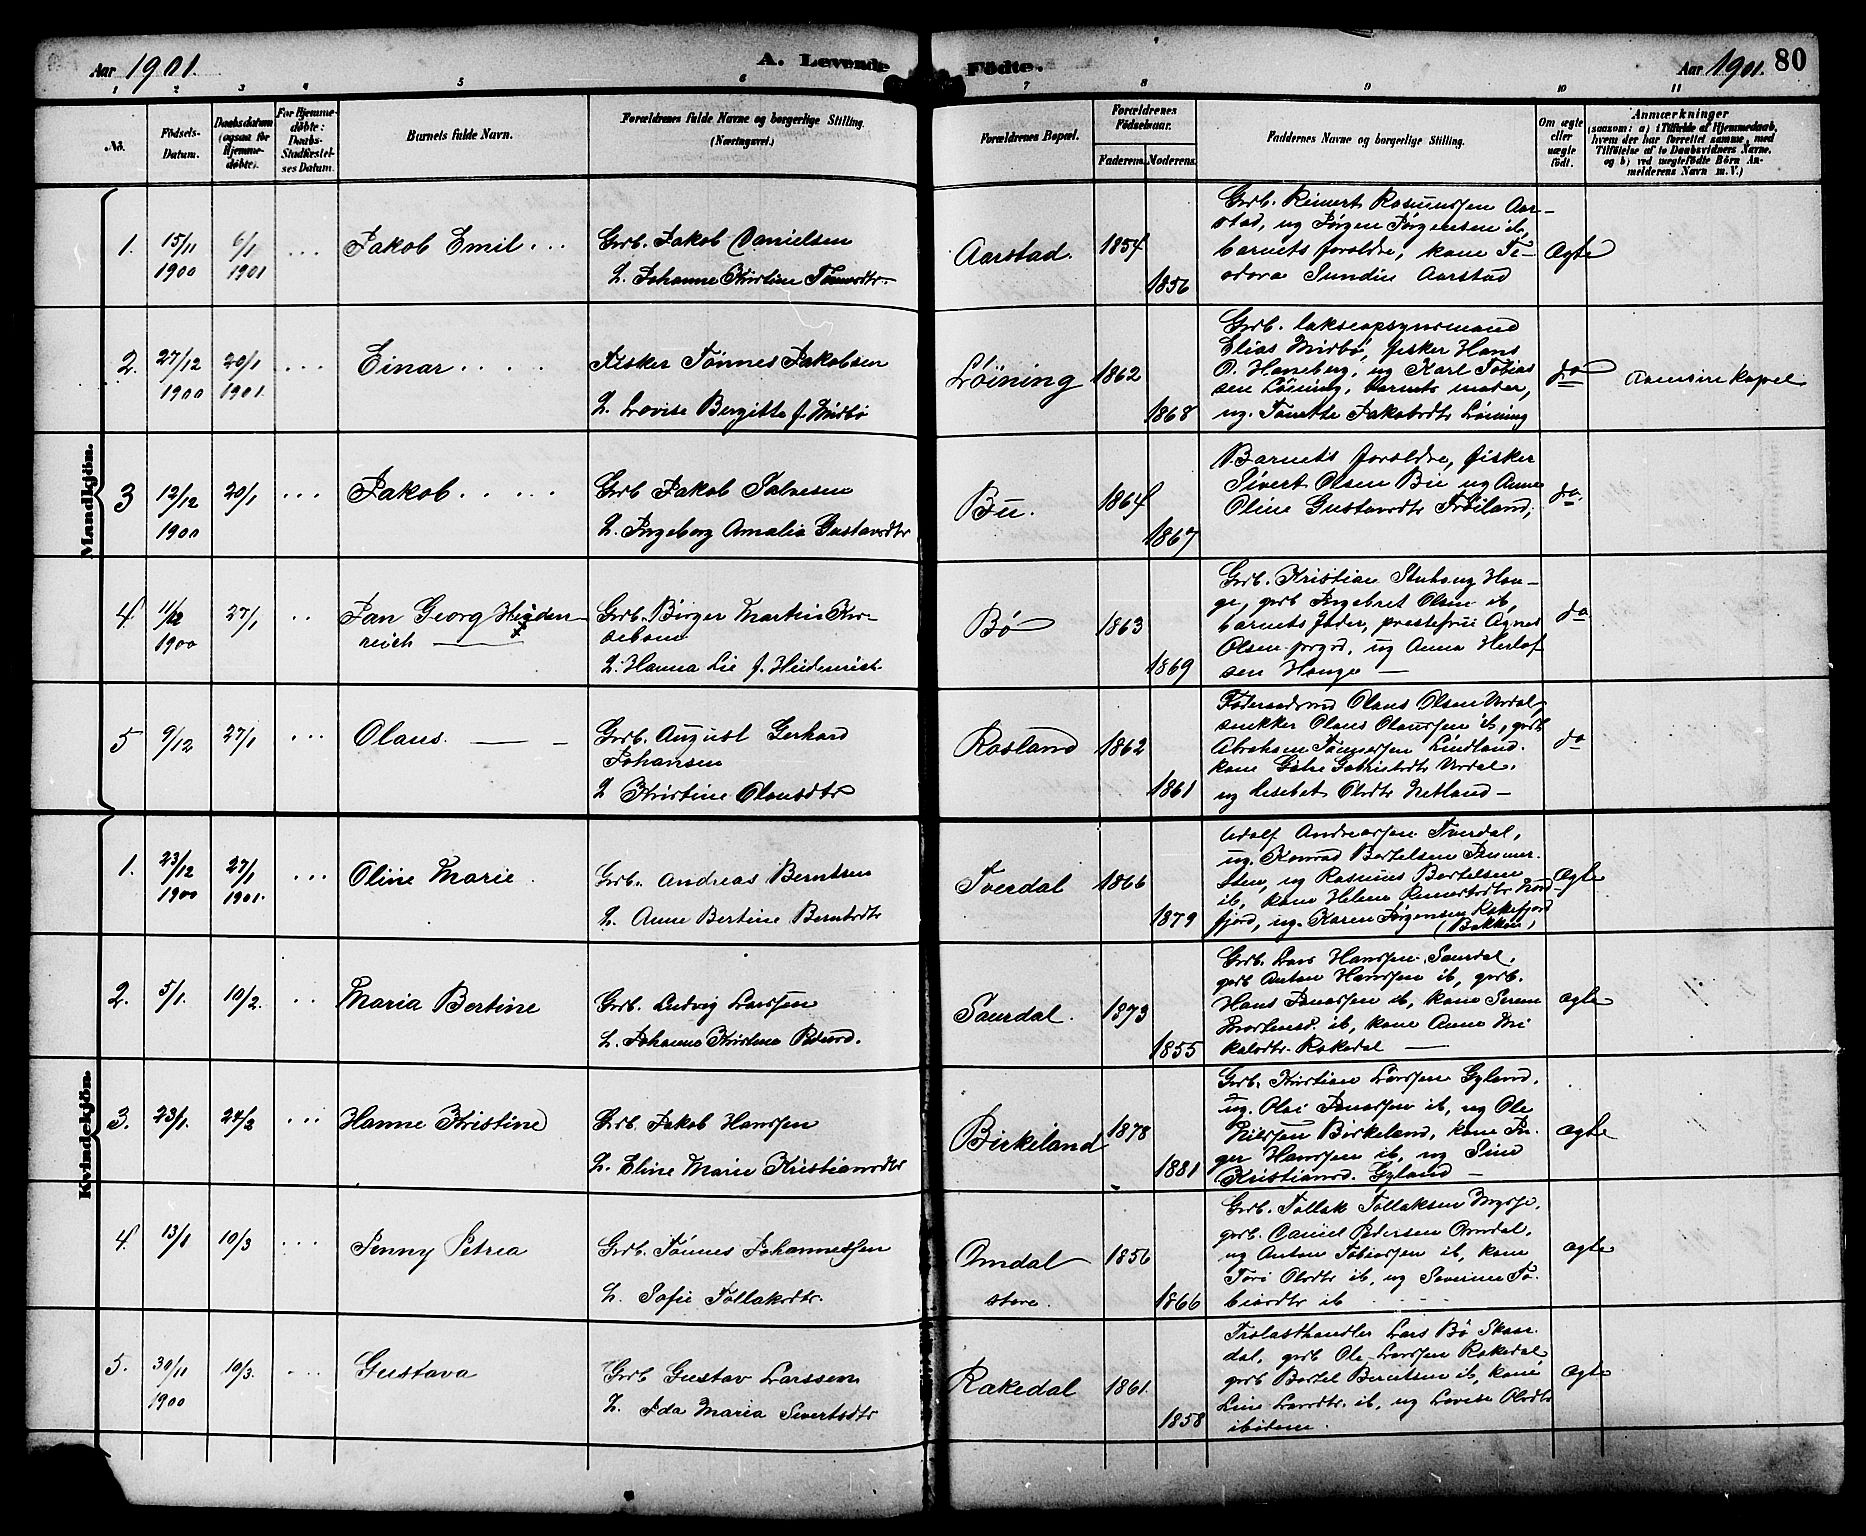 Aar 1901.
A. Levende Födte.
Aar 1901. 80
1 2 3 4 5 6 7 8 9 10 11
No.
Födsels-Datum.
Daabsdatum (ogsaa for Hjemmedøbte).
For Hjemmedøbte: Daabs-Stadfæstelses Datum.
Barnets fulde Navn.
Forældrenes fulde Navne og borgerlige Stilling. (Næringsvei.)
Forældrenes Bopæl.
Forældrenes Fødselsaar.
Faderens. Moderens.
Faddernes Navne og borgerlige Stilling.
Om ægte eller uægte født.
Anmærkninger
(saasom: a) i Tilfælde af Hjemmedaab, hvem der har forrettet samme, med Tilføielse af to Daabsvidners Navne, og b) ved uægtefødte Børn Anmelderens Navn m. V.)
Mandkjön.
1. 15/11 1900 6/1 1901 ... Jakob Emil ...
Grb. Jakob Danielsen
H. Johanne Kristine Tønnesdtr.
Aarstad. 1854 1856
Grb. Reinert Rasmussen Aar-
stad, ug Jørgen Jørgensen ib,
barnets foreldre, kone Te-
odora Sundin Aarstad
Ægte
2. 27/12 1900 20/1 1901. ... Einar ....
Fisker Tønnes Jakobsen
H. Lovise Bergitte f. Midbø
Løining 1862 1868
Grb. lakseopsynsmand
Elias Midbø, fisker Hans
O. Haneberg, ug Karl Tobias
sen Løining, barnets moder,
ug. Tonette Jakobsdtr Løining
do
Aamsire kapel
3 12/12 1900 20/1 ... Jakob .....
Grb Jakob Salvesen
H. Ingeborg Amalia Gustavsdtr
Bu. 1864 1867
Barnets foreldre, fisker
Sivert Olsen Bu ug Anne
Oline Gustavsdtr Frøiland,
do.
4. 11/12 1900 27/1 .. Jan Georg Heiden
reich
Grb. Birger Martin
H. Hanna Lie f. Heidenreich
Bø 1863 1869
Grb. Kristian Stuhaug Hau-
ge, grb Ingebret Olsen ib,
barnets fader, prestefrue Agnes
Olsen prgrd, ug Anna Herlof
sen Hauge
do
5 9/12 27/1 ... Olaus.
Grb. August Gerhard
Johansen
H Kristine Olausdtr
Rosland 1862 1861
Føderaadsmd Olaus Olsen Urdal,
snekker Olaus Olaussen ib, grb
Abraham Tønnessen Lindland.
kone Gabrielsdtr Urdal,
ug Lisebet Olsdtr Netland
do
Kvindekjön.
1. 23/12 1900 27/1 1901. ... Oline Marie.
Grb. Andreas Berntsen
H. Anne Bertine Berntsdtr
Tverdal 1866 1879
Adolf Andreassen Tverdal,
ug. Konrad Bertelsen Tømmer-
sten, ug Rasmus Bertelsen
ib, kone Helene Reinertsdtr Nord-
fjord, ug. Karen Jørgensen Rekefjord
(Bakken)
Ægte
2. 5/1. 10/2. .. Maria Bertine
Grb. Ludvig Larssen
H. Johanne Kristine Pedersd.
Saurdal. 1873 1855
Grb. Lars Hanssen Saurdal,
grb Anton Hanssen ib, grb.
Hans Jonassen ib, kone Seren
ib, kone Anne Mi
kalsdtr. Rakedal
ægte
3. 23/1. 24/2 ... Hanne Kristine
Grb. Jakob Hanssen
H. Eline Marie Kristiansdtr
Birkeland 1878 1881
Grb. Kristian Larssen Gyland,
ug. Olai Jonassen ib, ug Ole
Nilssen Birkeland, kone In-
ger Hanssen ib, ug Sine
Kristiansd. Gyland
ægte
4. 13/1 10/3 ... Jenny Petrea
Grb. Tønnes Johannessen
H. Sofie Tollaksdtr.
Omdal
store. 1856 1866
Grb. Tollak Tollaksen Mysse,
grb. Daniel Pedersen Omdal,
ug Anton Tobiassen ib, kone
Tori Olsdtr ib, ug Severine To-
biasdtr ib
ægte
5. 30/11 1900 10/3. ... Gustava
Grb Gustav Larssen
H. Ida Maria Sivertsdtr
Rakedal 1861. 1858
Trelasthandler Lars Bø Skaar-
dal, grb Ole Larssen Rakedal
grb Bertel Berntsen ib, kone
Line Larsdtr. ib, ug Lovise Olsdtr
ibidem.
ægte